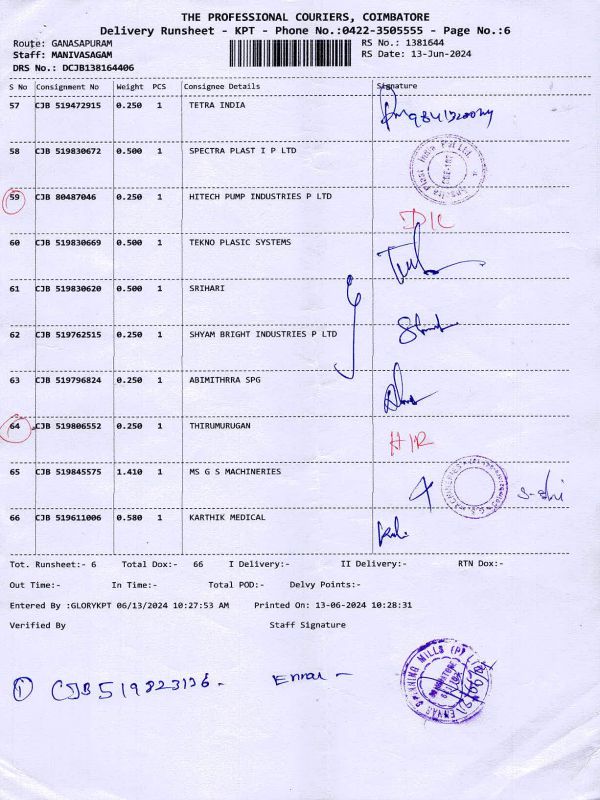 THE PROFESSIONAL COURIERS, COIMBATORE
Delivery Runsheet - KPT - Phone No.:0422-3505555 - Page No.:6
Route: GANASAPURAM RS No.: 1381644
Staff: MANIVASAGAM RS Date: 13-Jun-2024
DRS No.: DCJB138164406
S No Consignment No Weight PCS Consignee Details Signature
57 CJB 519472915 0.250 1 TETRA INDIA
58 CJB 519830672 0.500 1 SPECTRA PLAST I P LTD
59 CJB 80487046 0.250 1 HITECH PUMP INDUSTRIES P LTD
D/L
60 CJB 519830669 0.500 1 TEKNO PLASIC SYSTEMS
61 CJB 519830620 0.500 1 SRIHARI
62 CJB 519762515 0.250 1 SHYAM BRIGHT INDUSTRIES P LTD
63 CJB 519796824 0.250 1 ABIMITHRRA SPG
64 CJB 519806552 0.250 1 THIRUMURUGAN
H/R
65 CJB 519845575 1.410 1 MS G S MACHINERIES
66 CJB 519611006 0.580 1 KARTHIK MEDICAL
Tot. Runsheet:- 6 Total Dox:- 66 I Delivery:- II Delivery:- RTN Dox:-
Out Time:- In Time:- Total POD:- Delvy Points:-
Entered By :GLORYKPT 06/13/2024 10:27:53 AM Printed On: 13-06-2024 10:28:31
Verified By Staff Signature
① CJB 519823126 -